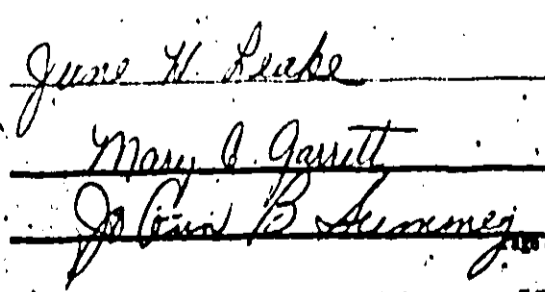 June H. Leake
Mary C. Garrett
Jo Ann B Summey